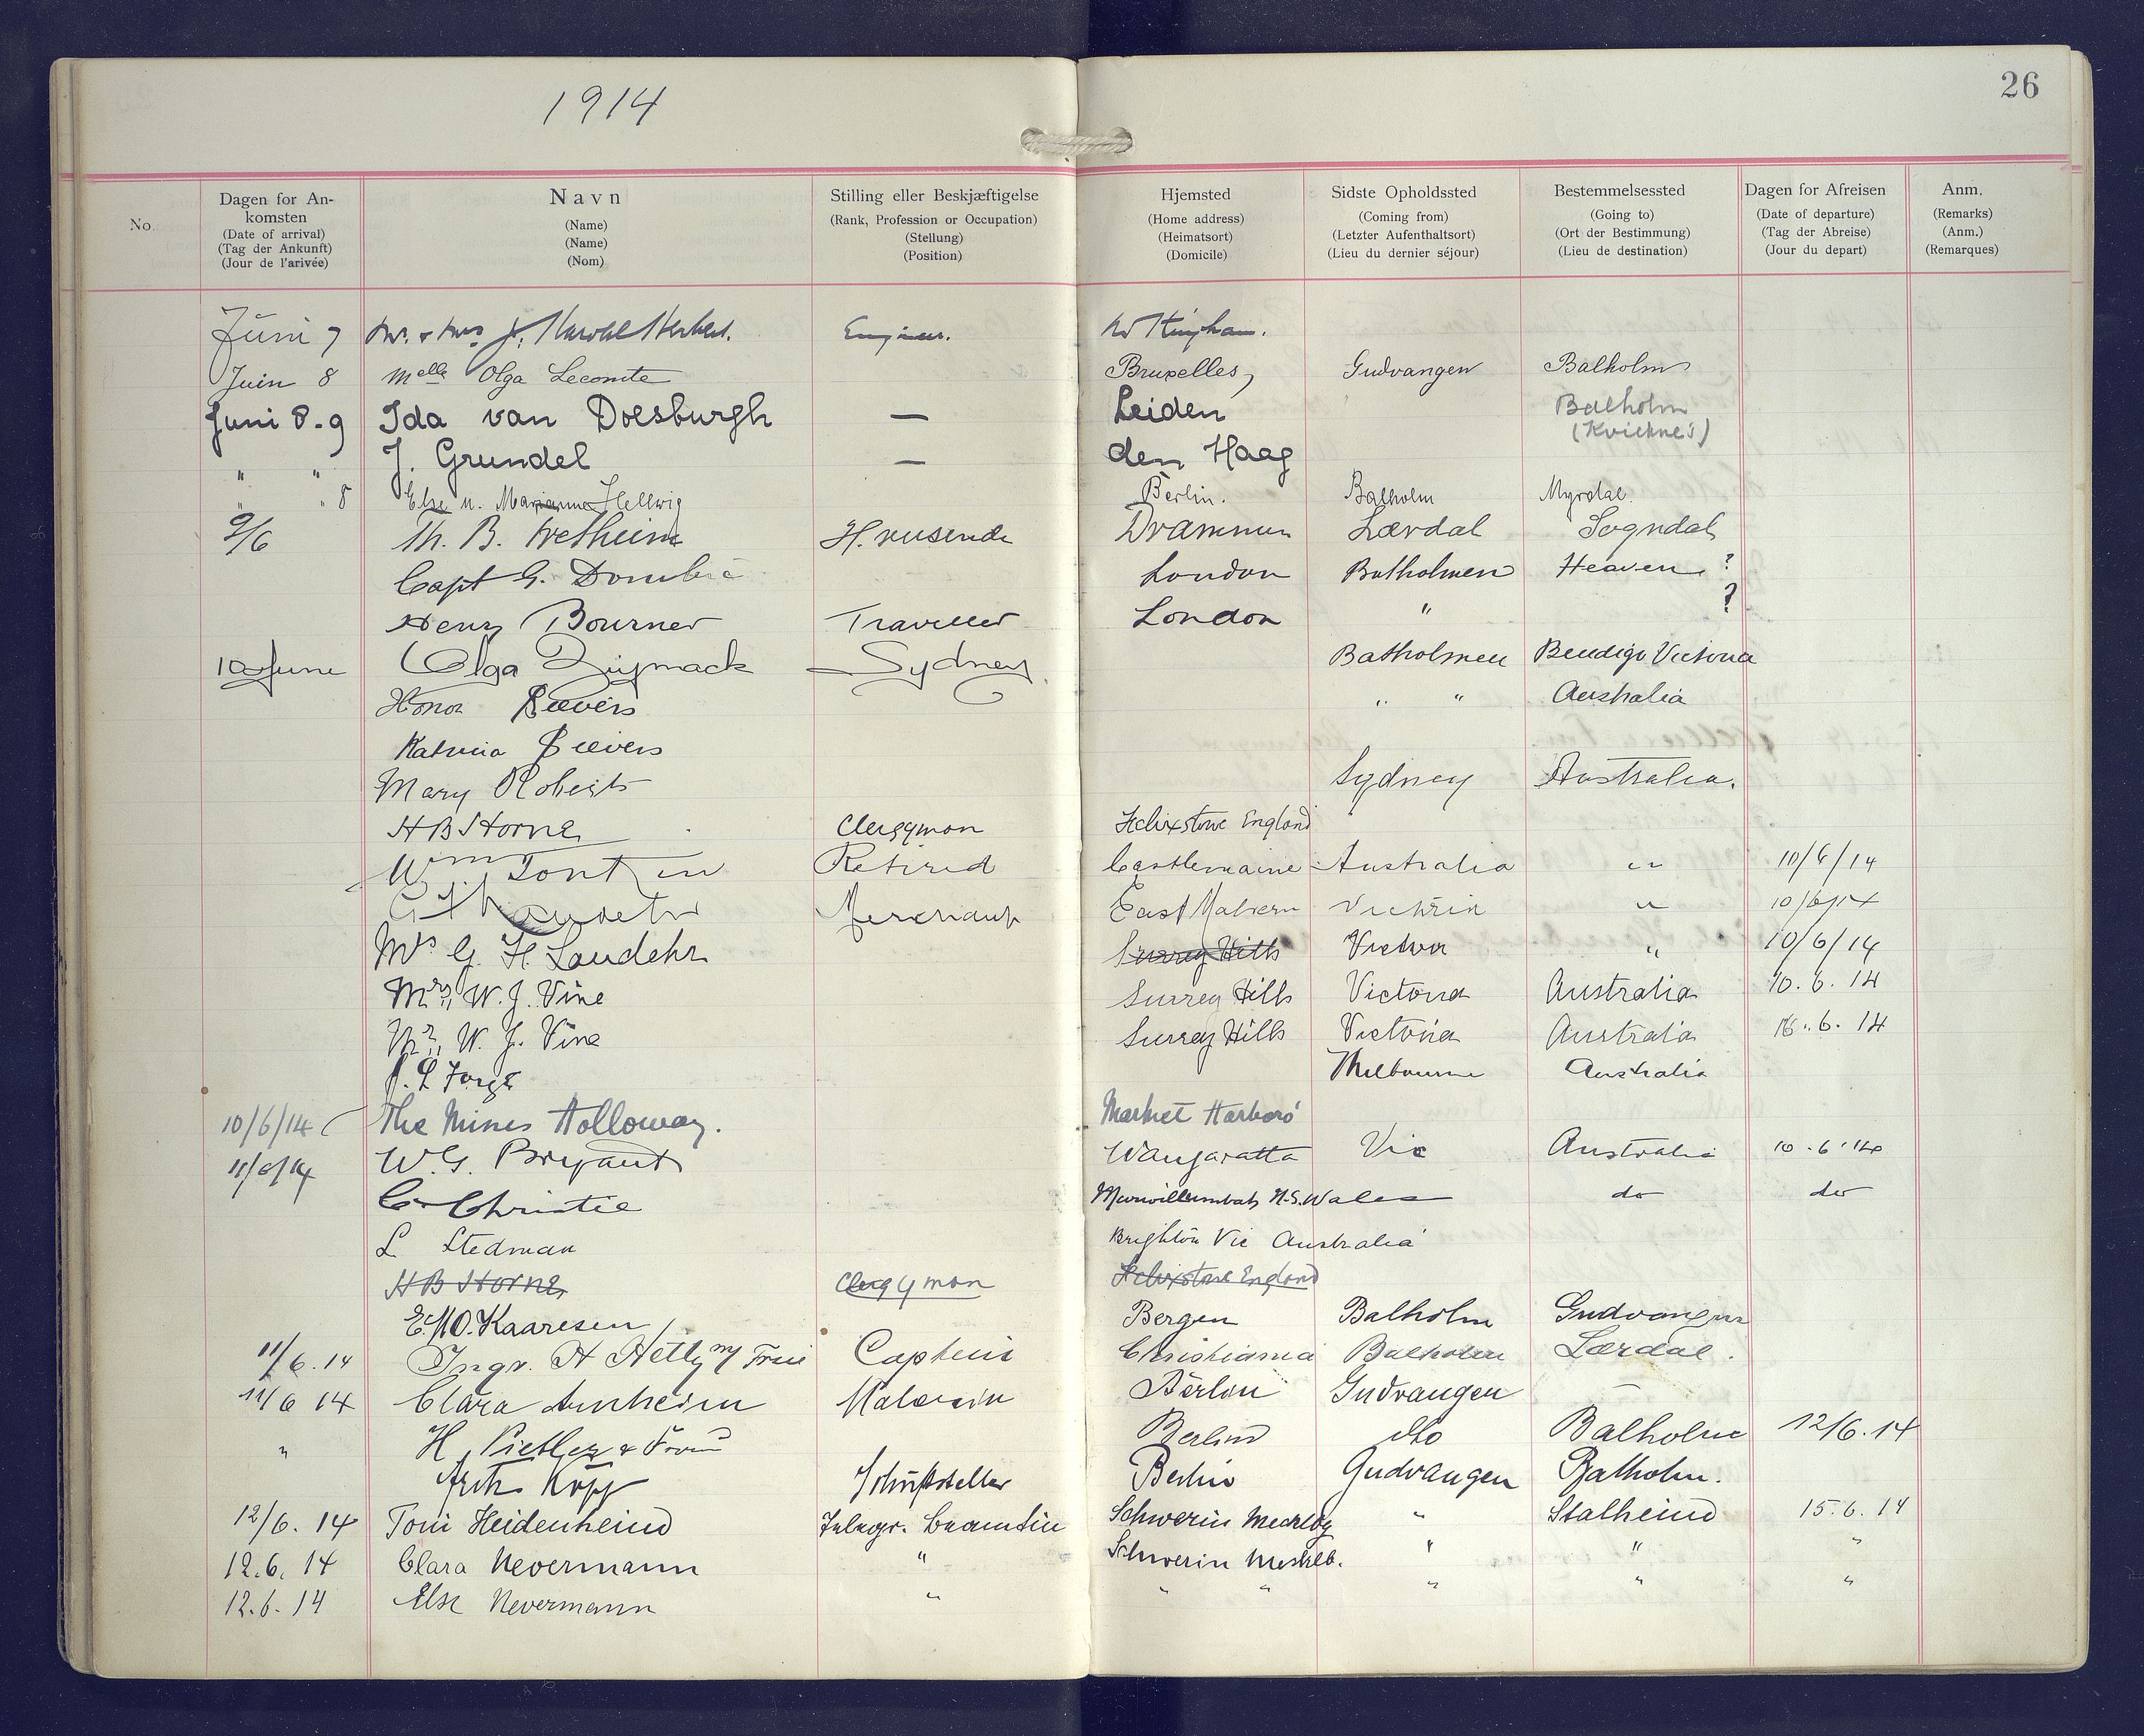 1914
26
No.
Dagen for An-
komsten
(Date of arrival)
(Tag der Ankunft)
(Jour de l'arivée)
Navn
(Name)
(Name)
(Nom)
Stilling eller Beskjæftigelse
(Rank, Profession or Occupation)
(Stellung)
(Position)
Hjemsted
(Home address)
(Heimatsort)
(Domicile)
Sidste Opholdssted
(Coming from)
(Letzter Aufenthaltsort)
(Lieu du dernier séjour)
Bestemmelsessted
(Going to)
(Ort der Bestimmung)
(Lieu de destination)
Dagen for Afreisen
(Date of departure)
(Tag der Abreise)
(Jour du depart)
Anm.
(Remarks)
(Anm.)
(Remarques)
Juni 7 Mr. & Mrs J. Harold Engineer. Nottingham.
Juin 8 Melle Olga Lecomte Bruxelles, Gudvangen Balholm
Juni 8-9 Ida van Doesburgh — Leiden Balholm
(Kvickne's)
" " J. Grundel — den Haag
" " 8 Else u. Marianne Hellwig Berlin. Balholm Myrdal.
9/6 Th. B. Fretheim H. reisende Drammen Lærdal Sogndal
Capt G. London Balholmen Heaven ?
Henry Bourner Traveller London " ?
10 June Olga Sydney Balholmen Bendigo Victoria
Honor " " Australia
Mary Roberts Sydney Australia.
H B Horne Clergyman Felixstowe England
Wm Retired Castlemaine Australia " 10/6/14
Merchant East Malvern Victoria " 10/6/14
Mrs G. H. Landehr Surrey Hills Victoria " 10/6/14
Mrs, W. J. Vine Surrey Hills Victoria Australia 10. 6. 14
Mr, W. J. Vine Surrey Hills Victoria Australia 10. 6. 14
Melbourne Australia
10/6/14 The Misses Holloway. Market Harboro'
11/6/14 W. G. Bryant Wangaratta Vic Australia 10.6.14
C Christie Murwillumbah N.S. Wales do do
L Stedman Brighton Vic Australia
H B Horne Clergyman Felixstowe England
Kaaresen Bergen Balholm Gudvangen
11/6.14 Ingv. H m/ Frue Captein Christiania Balholm Lærdal.
11/6 14 Clara Arnheim Malerin Berlin Gudvangen —
" H. & Frau Berlin dto Balholm 12/6.14
Fritz Kopp Schriftsteller Berlin Gudvangen Balholm.
12/6. 14 Toni Heidenheim Telegr. beamtin Schwerin Mecklbg " Stalheim 15.6.14
12.6. 14 Clara Nevermann " Schwerin Mecklb. " " "
12.6. 14 Else Nevermann " " " " " "